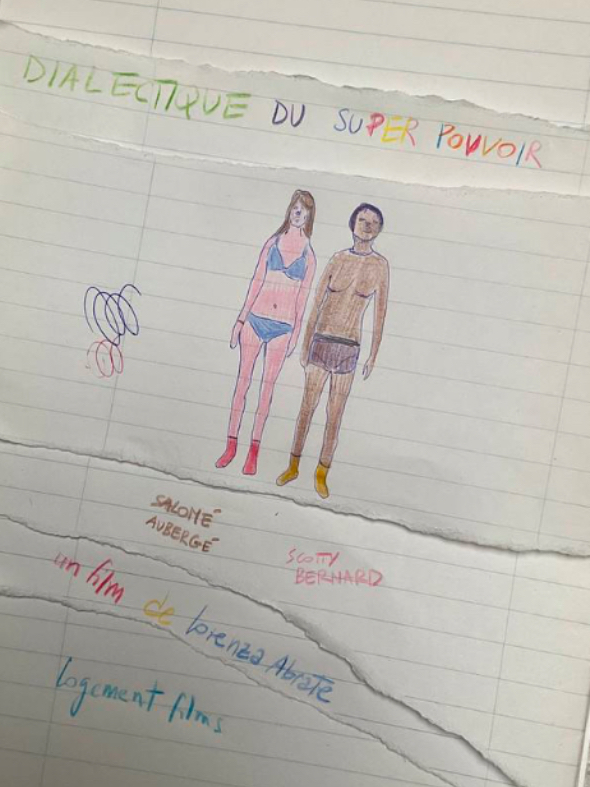 DIALECTIQUE DU SUPER POUVOIR
SALOMÉ
AUBERGÉ
SCOTTY
BERNARD
un film de Lorenza Abrate
logement films